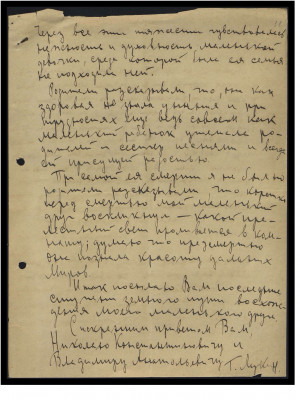 Через все эти тяжести чувствовалась
нежность и духовность маленькой
девочки, среда которой была ея семья
не подходила ей.
Родители рассказывали, что, она как
здоровая не знала уныния и при
трудностях еще ведь совсем как
маленький ребенок утешала ро-
дителей и сестер песнями и всегда
ей присущей радостью.
При самой ея смерти я не был, но
родители рассказывали, что коротко
перед смертью мой маленький
друг воскликнул — какой пре-
лестный свет проникает в ком-
нату; думаю что предсмертно
она познала красоту дальних
Миров.
Итак посылаю Вам последние
ступени земного пути восхож-
дения моего маленького друга
С искренним приветом Вам,
Николаю Константиновичу и
Владимиру Анатольевичу